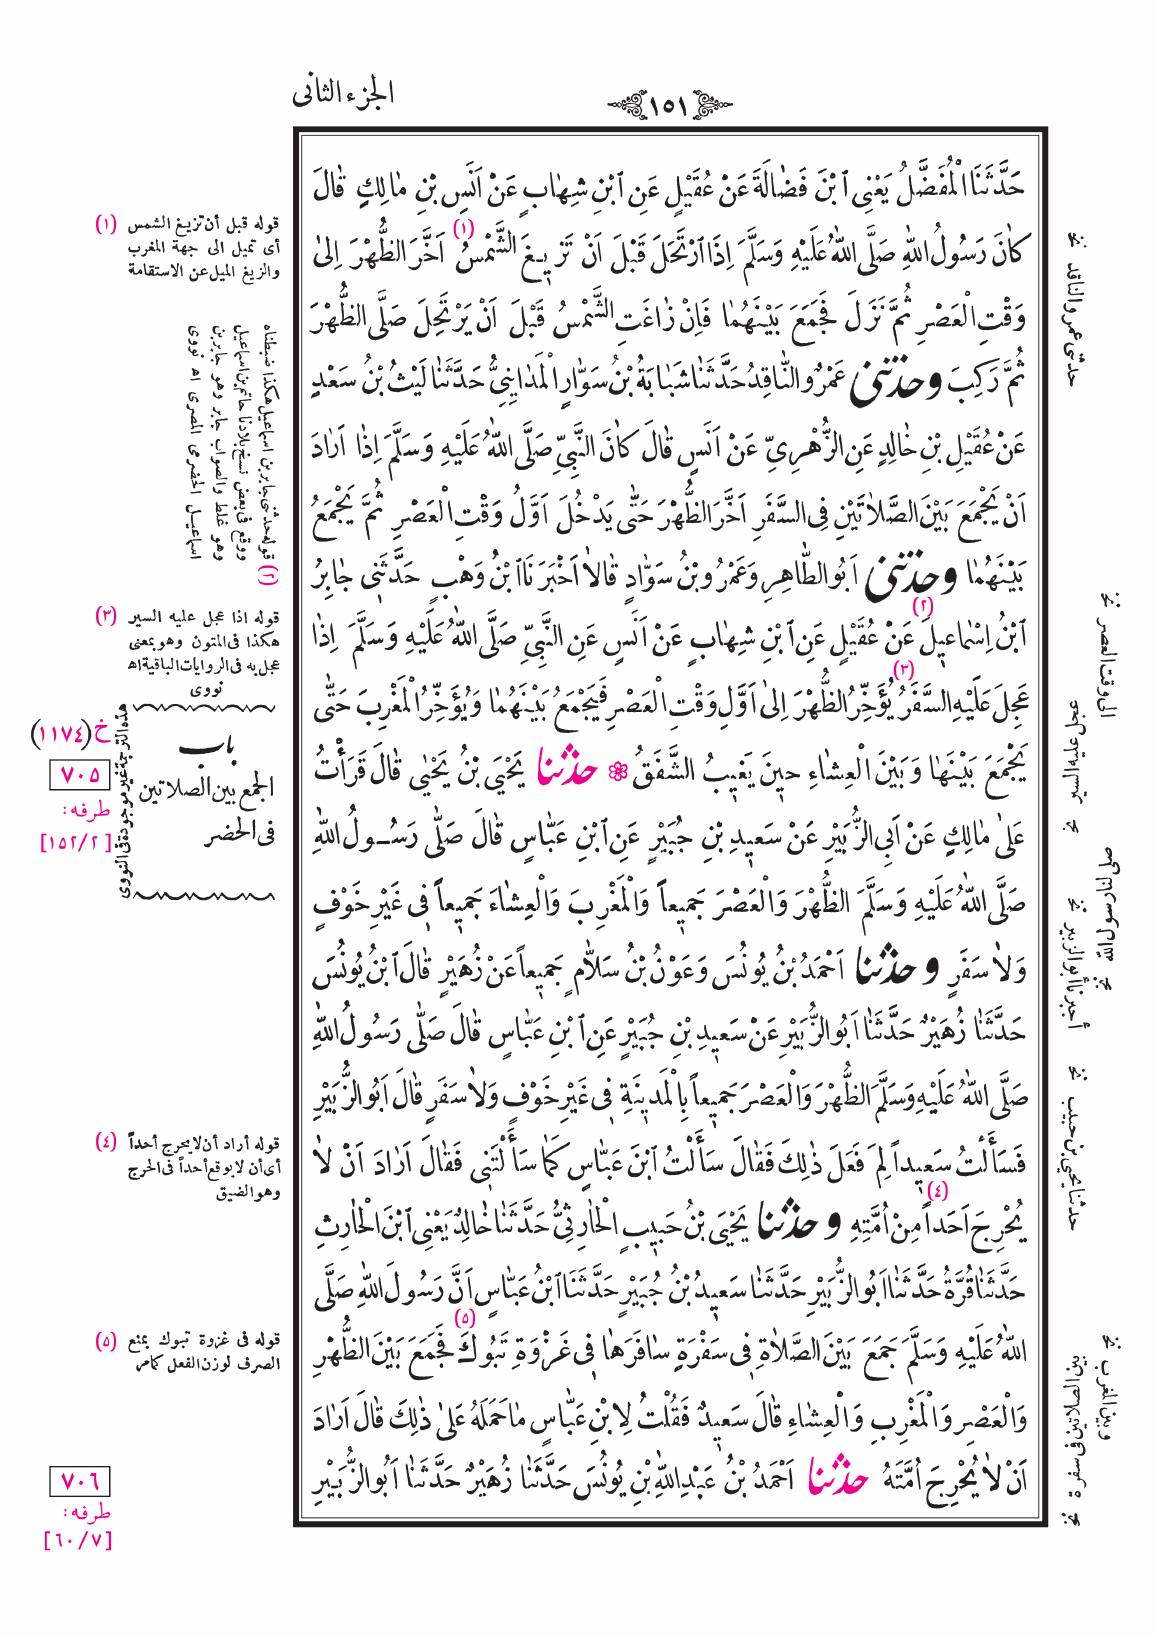 الجزء الثانى
١٥١
حَدَّثَنَا الْمُفَضَّلُ يَعْنِى ابْنَ فَضَالَةَ عَنْ عُقَيْلٍ عَنِ ابْنِ شِهَابٍ عَنْ اَنَسِ بْنِ مَالِكٍ قَالَ
كَانَ رَسُولُ اللهِ صَلَّى اللهُ عَلَيْهِ وَسَلَّمَ اِذَا ارْتَحَلَ قَبْلَ اَنْ تَزِيغَ الشَّمْسُ (١) اَخَّرَ الظُّهْرَ اِلىٰ
وَقْتِ الْعَصْرِ ثُمَّ نَزَلَ فَجَمَعَ بَيْنَهُمَا فَاِنْ زَاغَتِ الشَّمْسُ قَبْلَ اَنْ يَرْتَحِلَ صَلَّى الظُّهْرَ
ثُمَّ رَكِبَ وحدثنى عَمْرٌو النَّاقِدُ حَدَّثَنَا شَبَابَةُ بْنُ سَوَّارٍ الْمَدَايِنِىُّ حَدَّثَنَا لَيْثُ بْنُ سَعْدٍ
عَنْ عُقَيْلِ بْنِ خَالِدٍ عَنِ الزُّهْرِىِّ عَنْ اَنَسٍ قَالَ كَانَ النَّبِىّ صَلَّى اللهُ عَلَيْهِ وَسَلَّمَ اِذَا اَرَادَ
اَنْ يَجْمَعَ بَيْنَ الصَّلاَتَيْنِ فِى السَّفَرِ اَخَّرَ الظُّهْرَ حَتّٰى يَدْخُلَ اَوَّلُ وَقْتِ الْعَصْرِ ثُمَّ يَجْمَعُ
بَيْنَهُمَا وحدثنى اَبُو الطَّاهِرِ وَعَمْرُو بْنُ سَوَّادٍ قَالاَ اَخْبَرَنَا ابْنُ وَهْبٍ حَدَّثَنِى جَابِرُ (٢)
ابْنُ اِسْمَاعِيلَ عَنْ عُقَيْلٍ عَنِ ابْنِ شِهَابٍ عَنْ اَنَسٍ عَنِ النَّبِىِّ صَلَّى اللهُ عَلَيْهِ وَسَلَّمَ اِذَا
عَجِلَ عَلَيْهِ السَّفَرُ (٣) يُؤَخِّرُ الظُّهْرَ اِلىٰ اَوَّلِ وَقْتِ الْعَصْرِ فَيَجْمَعُ بَيْنَهُمَا وَيُؤَخِّرُ الْمَغْرِبَ حَتّٰى
يَجْمَعَ بَيْنَهَا وَبَيْنَ الْعِشَاءِ حِينَ يَغِيبُ الشَّفَقُ ۞ حدثنا يَحْيَى بْنُ يَحْيٰى قَالَ قَرَأْتُ
عَلىٰ مَالِكٍ عَنْ اَبِى الزُّبَيْرِ عَنْ سَعِيدِ بْنِ جُبَيْرٍ عَنِ ابْنِ عَبَّاسٍ قَالَ صَلّٰى رَسُولُ اللهِ
صَلَّى اللهُ عَلَيْهِ وَسَلَّمَ الظُّهْرَ وَالْعَصْرَ جَمِيعاً وَالْمَغْرِبَ وَالْعِشَاءَ جَمِيعاً فِى غَيْرِ خَوْفٍ
وَلاَ سَفَرٍ وحدثنا اَحْمَدُ بْنُ يُونُسَ وَعَوْنُ بْنُ سَلاَّمٍ جَمِيعاً عَنْ زُهَيْرٍ قَالَ ابْنُ يُونُسَ
حَدَّثَنَا زُهَيْرٌ حَدَّثَنَا اَبُو الزُّبَيْرِ عَنْ سَعِيدِ بْنِ جُبَيْرٍ عَنِ ابْنِ عَبَّاسٍ قَالَ صَلّٰى رَسُولُ اللهِ
صَلَّى اللهُ عَلَيْهِ وَسَلَّمَ الظُّهْرَ وَالْعَصْرَ جَمِيعاً بِالْمَدِينَةِ فِى غَيْرِ خَوْفٍ وَلاَ سَفَرٍ قَالَ اَبُو الزُّبَيْرِ
فَسَأَلْتُ سَعِيداً لِمَ فَعَلَ ذٰلِكَ فَقَالَ سَأَلْتُ ابْنَ عَبَّاسٍ كَمَا سَأَلْتَنِى فَقَالَ اَرَادَ اَنْ لاَ
يُحْرِجَ اَحَداً (٤) مِنْ اُمَّتِهِ وحدثنا يَحْيَى بْنُ حَبِيبٍ الْحَارِثِىُّ حَدَّثَنَا خَالِدٌ يَعْنِى ابْنَ الْحَارِثِ
حَدَّثَنَا قُرَّةُ حَدَّثَنَا اَبُو الزُّبَيْرِ حَدَّثَنَا سَعِيدُ بْنُ جُبَيْرٍ حَدَّثَنَا ابْنُ عَبَّاسٍ اَنَّ رَسُولَ اللهِ صَلَّى
اللهُ عَلَيْهِ وَسَلَّمَ جَمَعَ بَيْنَ الصَّلاَةِ فِى سَفْرَةٍ سَافَرَهَا فِى غَزْوَةِ تَبُوكَ (٥) فَجَمَعَ بَيْنَ الظُّهْرِ
وَالْعَصْرِ وَالْمَغْرِبِ وَالْعِشَاءِ قَالَ سَعِيدٌ فَقُلْتُ لِابْنِ عَبَّاسٍ مَا حَمَلَهُ عَلىٰ ذٰلِكَ قَالَ اَرَادَ
اَنْ لاَ يُحْرِجَ اُمَّتَهُ حدثنا اَحْمَدُ بْنُ عَبْدِ اللهِ بْنِ يُونُسَ حَدَّثَنَا زُهَيْرٌ حَدَّثَنَا اَبُو الزُّبَيْرِ
(١) قوله قبل أن تزيغ الشمس
أى تميل الى جهة المغرب
والزيغ الميل عن الاستقامة
(٢) قوله حدثنى جابر بن اسماعيل هكذا ضبطناه
ووقع فى بعض نسخ بلادنا حاتم بن اسماعيل
وهو غلط والصواب جابر وهو جابر بن
اسماعيل الحضرمى المصرى اه نووى
(٣) قوله اذا عجل عليه السير
هكذا فى المتون وهو بمعنى
عجل به فى الروايات الباقية اه
نووى
باب
الجمع بين الصلاتين
فى الحضر
هذه الترجمة غير موجودة فى النووى
خ (١١٧٤)
٧٠٥
طرفه:
[١٥٢/٢]
(٤) قوله أراد أن لا يحرج أحداً
أى أن لا يوقع أحداً فى الحرج
وهو الضيق
(٥) قوله فى غزوة تبوك بمنع
الصرف لوزن الفعل كمامر
٧٠٦
طرفه:
[٦٠/٧]
حدثنى عمرو الناقد نخ
الى وقت العصر نخ
عجل عليه السير نخ
صلى لنا رسول الله نخ
أخبرنا أبو الزبير نخ
حدثنا يحيى بن حبيب نخ
بين الصلاتين فى سفرة نخ
وبين المغرب نخ